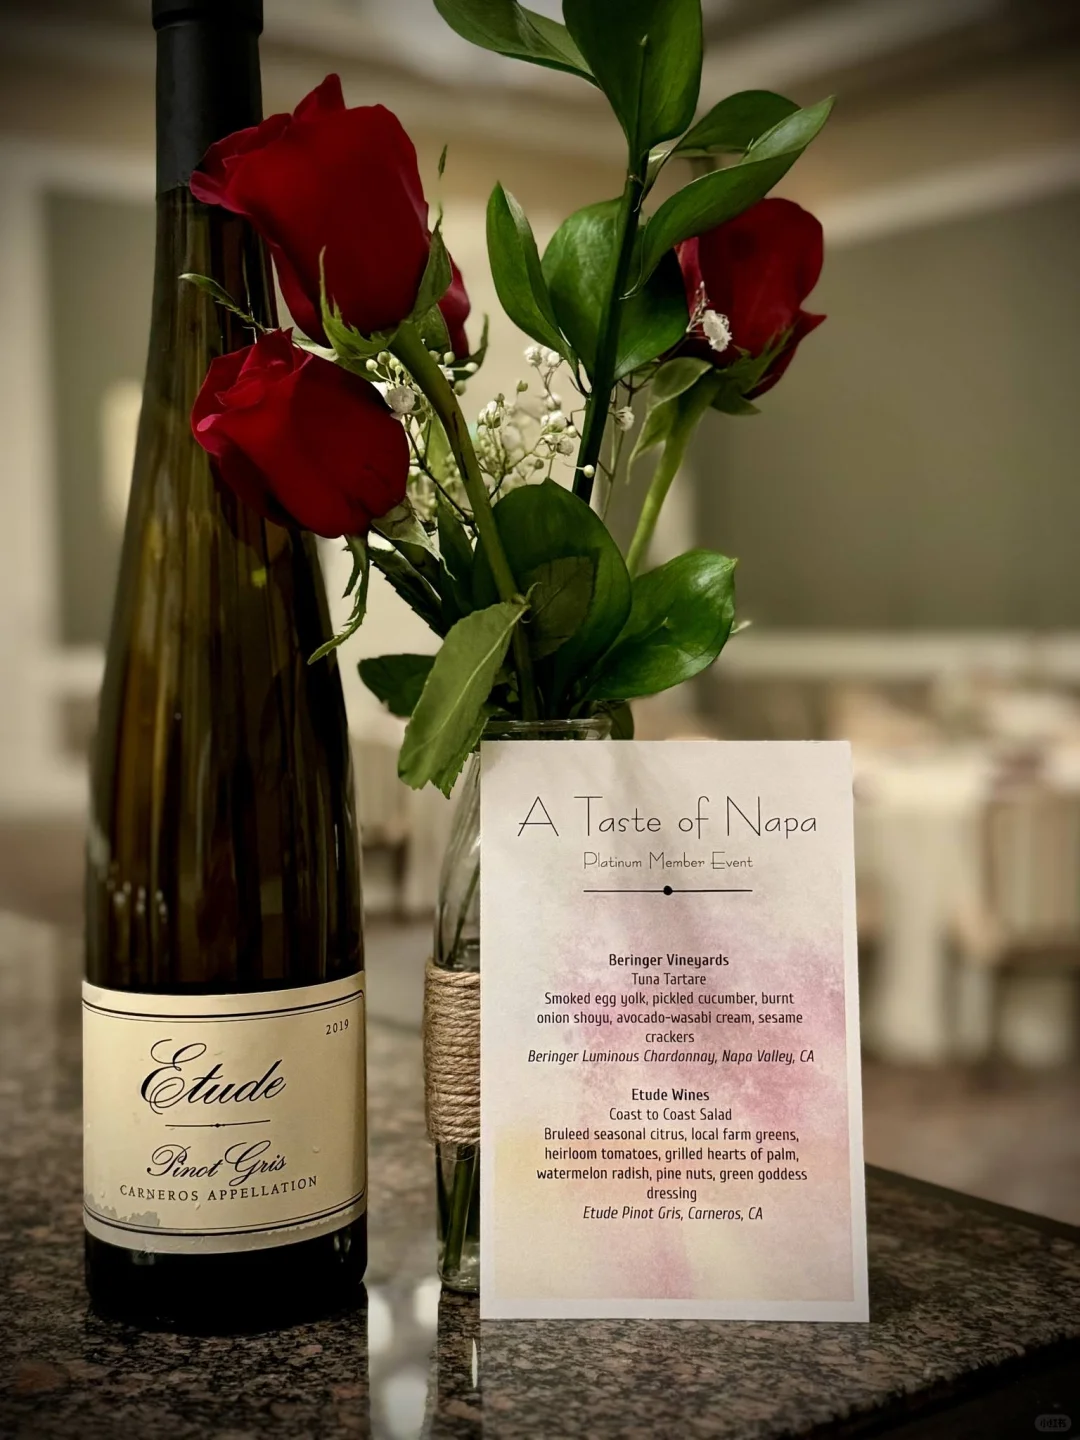 2019
Etude
Pinot Gris
CARNEROS APPELLATION
A Taste of Napa
Platinum Member Event
Beringer Vineyards
Tuna Tartare
Smoked egg yolk, pickled cucumber, burnt
onion shoyu, avocado-wasabi cream, sesame
crackers
Beringer Luminous Chardonnay, Napa Valley, CA
Etude Wines
Coast to Coast Salad
Bruleed seasonal citrus, local farm greens,
heirloom tomatoes, grilled hearts of palm,
watermelon radish, pine nuts, green goddess
dressing
Etude Pinot Gris, Carneros, CA